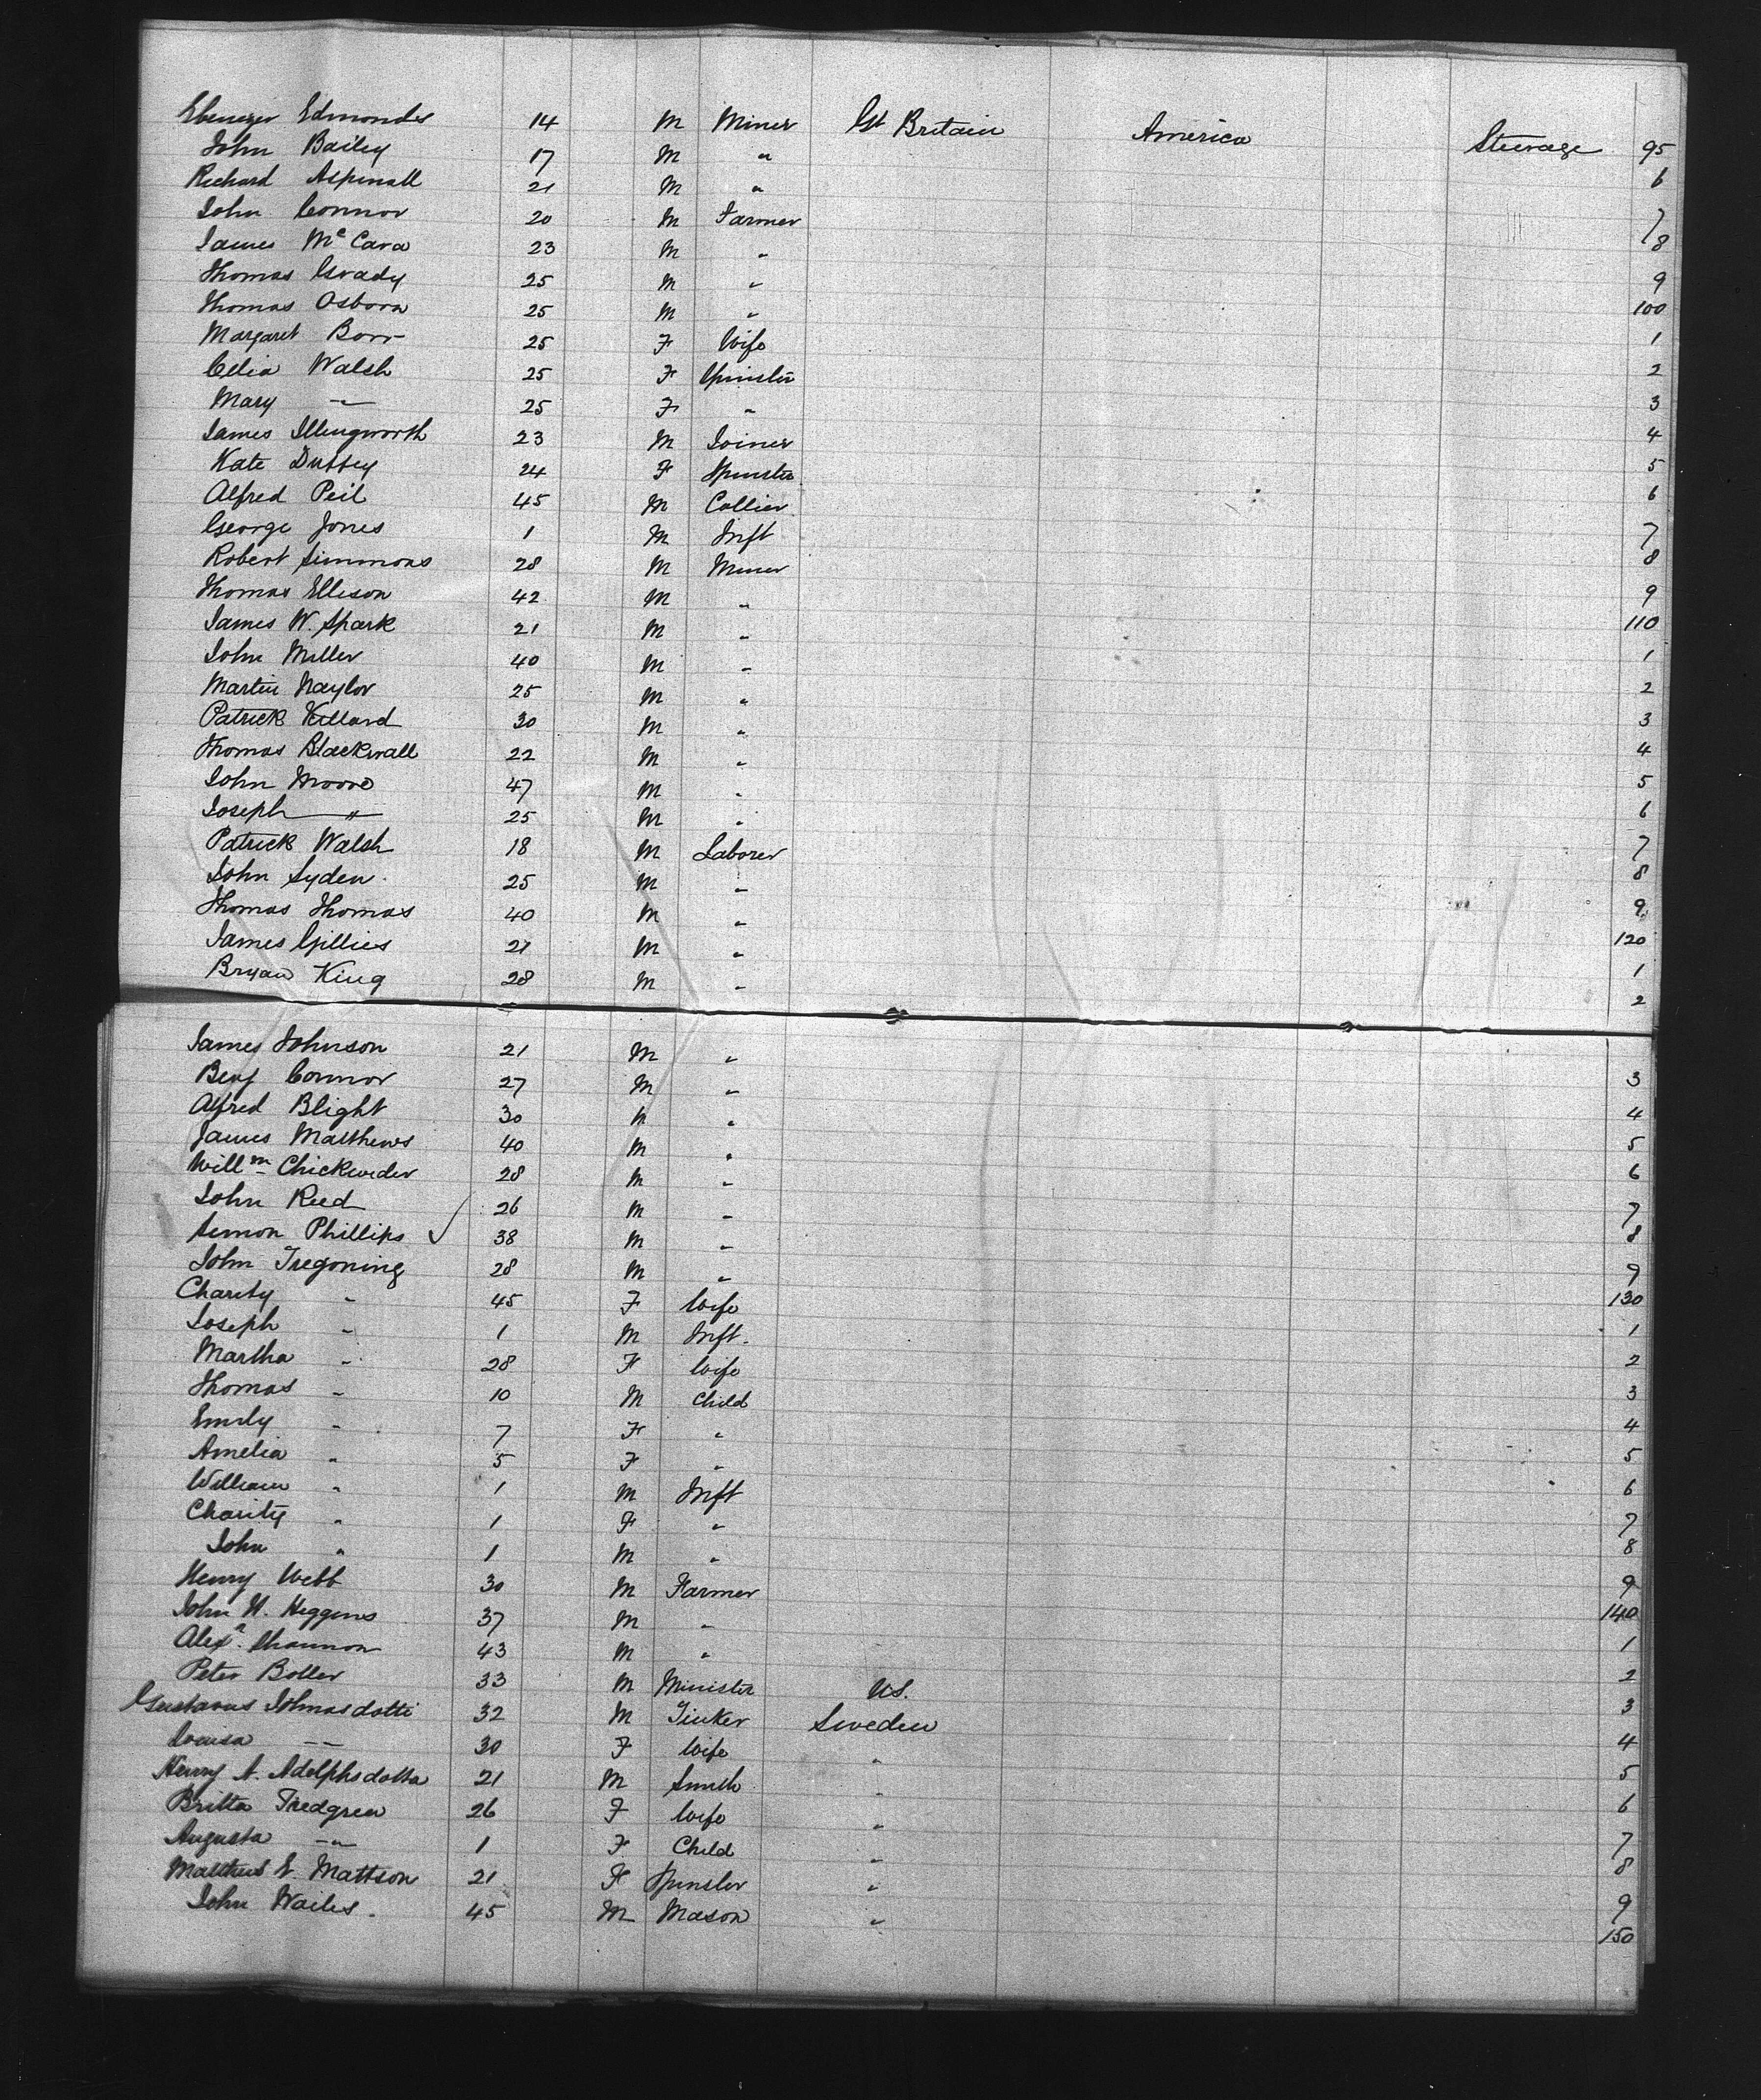 Ebenezer Edmonds 14 M Miner Gt Britain America Steerage 95
John Bailey 17 M " 6
Richard Aspinall 21 M " 7
John Connor 20 M Farmer 8
James McCara 23 M " 9
Thomas Grady 25 M " 100
Thomas Osborn 25 M " 1
Margaret Barr 25 F Wife 2
Celia Walsh 25 F Spinster 3
Mary — " — 25 F " 4
James Illingworth 23 M Joiner 5
Kate Duffey 24 F Spinster 6
Alfred Peil 45 M Collier 7
George Jones 1 M Inft 8
Robert Simmons 28 M Miner 9
Thomas Ellison 42 M " 110
James W. Spark 21 M " 1
John Miller 40 M " 2
Martin Naylor 25 M " 3
Patrick Killard 30 M " 4
Thomas Blackwall 22 M " 5
John Moore 47 M " 6
Joseph — " — 25 M " 7
Patrick Walsh 18 M Laborer 8
John Syden 25 M " 9
Thomas Thomas 40 M " 120
James Gillies 21 M " 1
Bryan King 28 M " 2
James Johnson 21 M " 3
Benj Connor 27 M " 4
Alfred Blight 30 M " 5
James Matthews 40 M " 6
Willm Chickwider 28 M " 7
John Reed 26 M " 8
Simon Phillips ✓ 38 M " 9
John Tregoning 28 M " 130
Charity " 45 F Wife 1
Joseph " 1 M Inft. 2
Martha " 28 F Wife 3
Thomas " 10 M Child 4
Emily " 7 F " 5
Amelia " 5 F " 6
William " 1 M Inft 7
Charity " 1 F " 8
John " 1 M " 9
Henry Webb 30 M Farmer 140
John H. Higgins 37 M " 1
Alexr. Shannon 43 M " 2
Peter Boller 33 M Minister U.S. 3
Gustavus Johnasdotti 32 M Tinker Sweden 4
Louisa — " — 30 F Wife " 5
Henry A. Adelphsdotta 21 M Smith " 6
Britta Tredgren 26 F Wife " 7
Augusta — " — 1 F Child " 8
Mattson 21 F Spinster " 9
John Wailes. 45 M Mason " 150